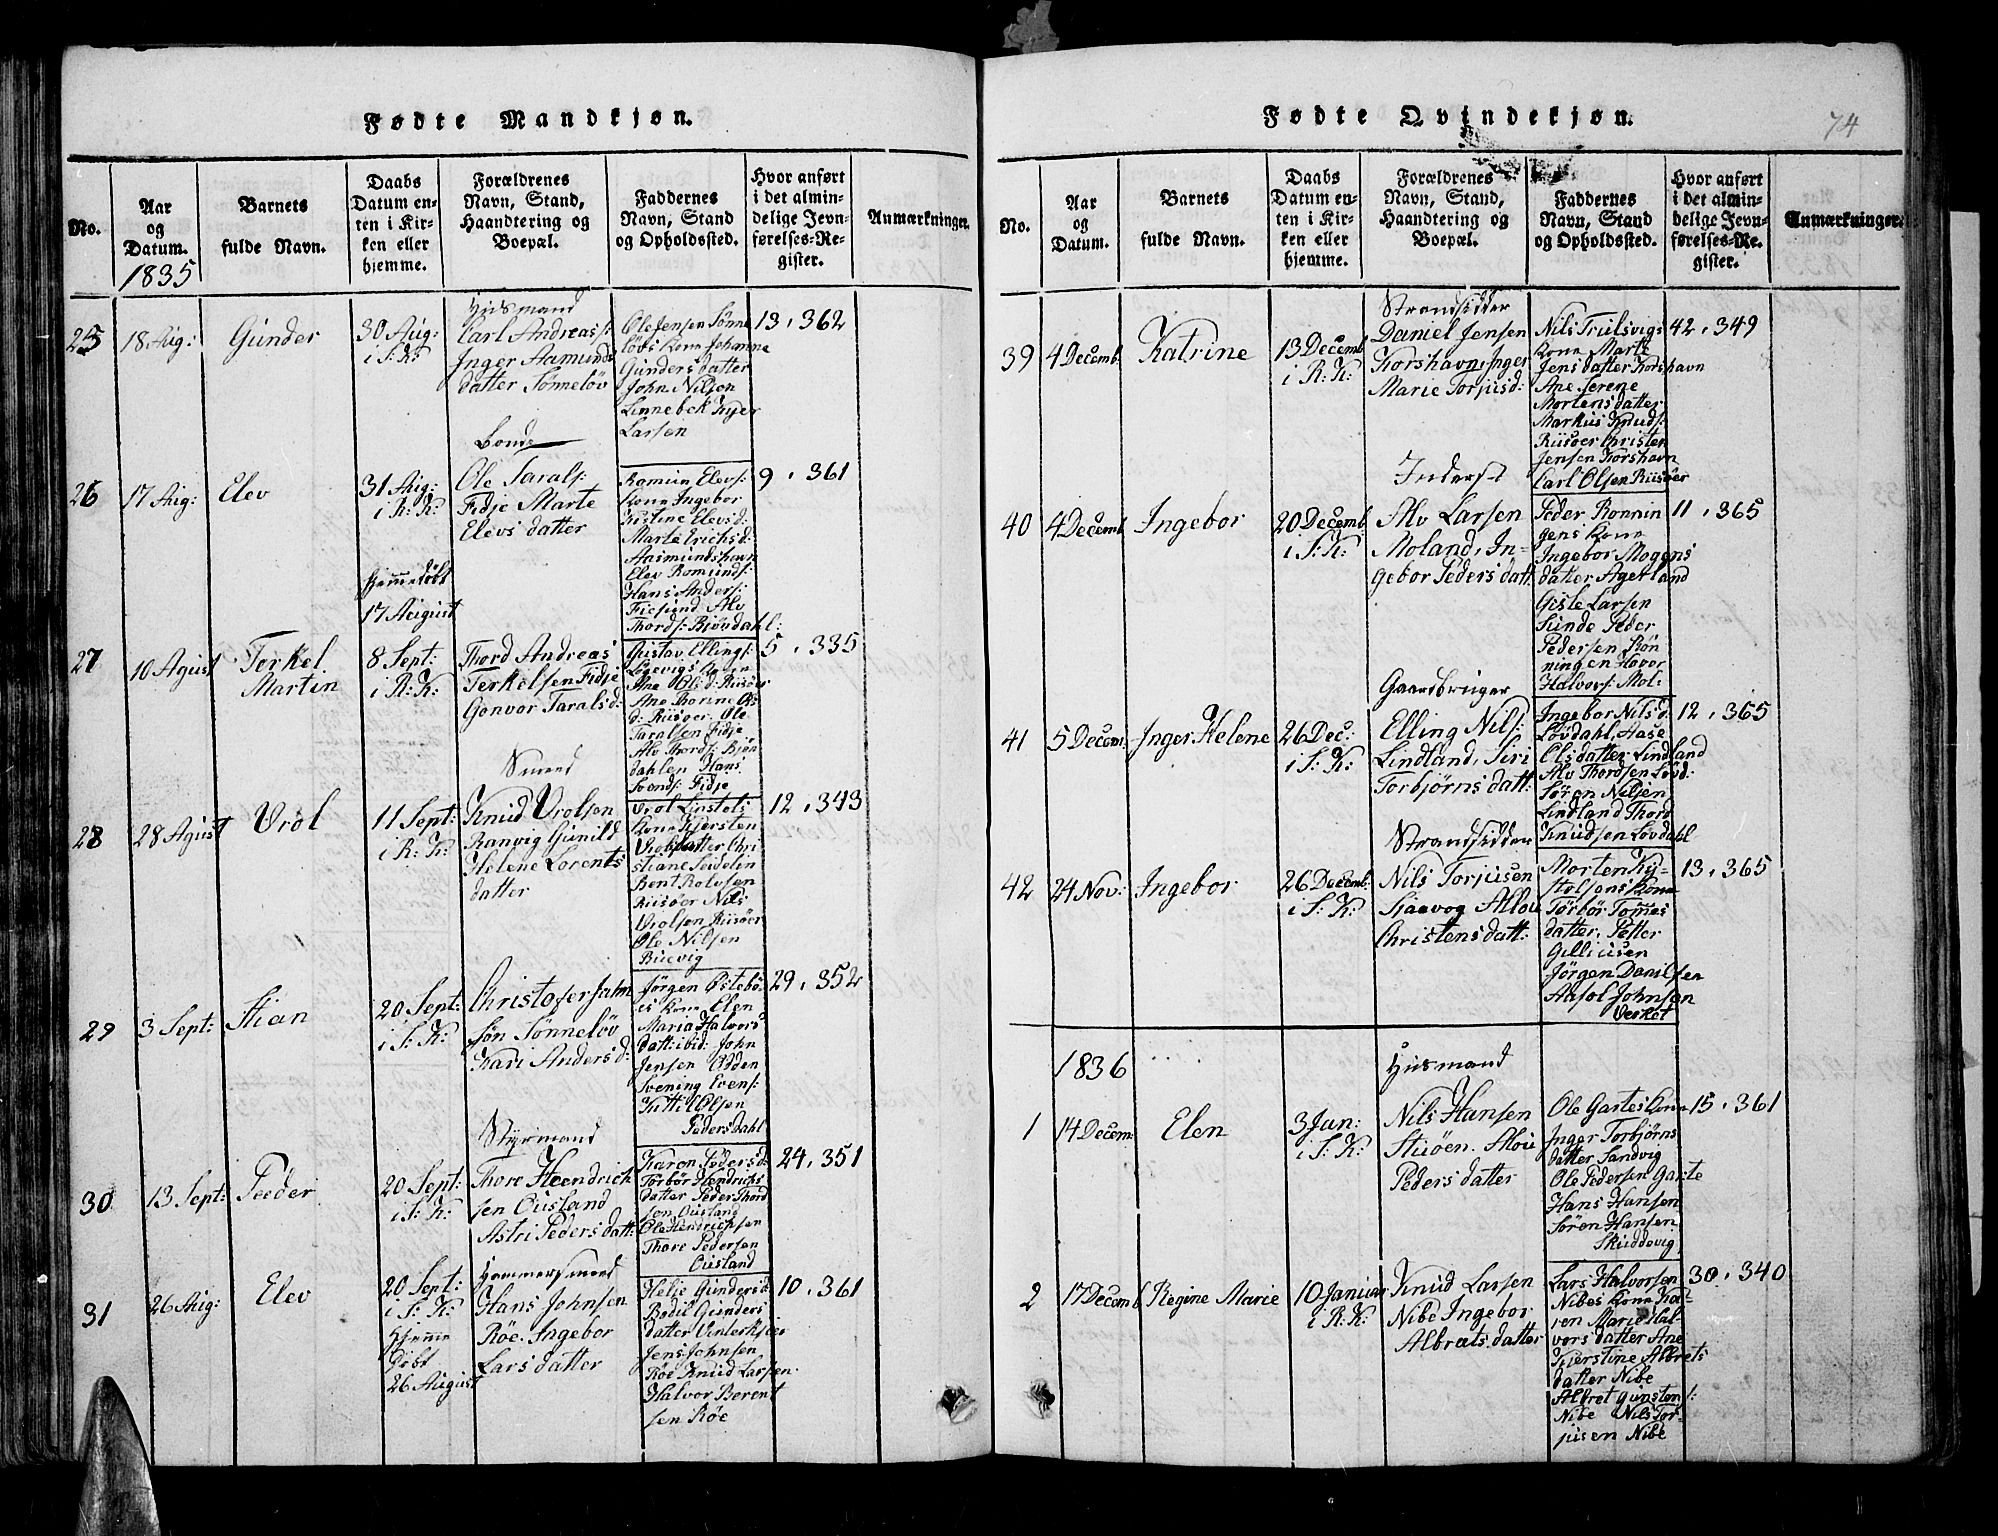 Fødte Mandkjøn.
No.
Aar
og
Datum.
1835
Barnets
fulde Navn.
Daabs
Datum en-
ten i Kir-
ken eller
hjemme.
Forældrenes
Navn, Stand,
Haandtering og
Boepæl.
Faddernes
Navn, Stand
og Opholdssted.
Hvor anført
i det almin-
delige Jevn-
førelses-Re-
gister.
Anmærkninger.
25
18 Aug:
Gunder
30 Aug:
i S: K:
Huusmand
Carl Andreas:
Inger Aamunds
datter Sønneløv
Ole Jensen Sønne
løvs Kone Johanne
Gundersdatter
John Nilsen
Linnebek Kyer
Larsen
13, 362
26
17 Aug:
Elev
31 Aug:
i R: K:
Hjemmedøbt
17 August
Bonde
Ole Tarals:
Fidje Marte
Elevsdatter
Romun Elevs:
Kone Ingebor
Kistine Elevsd:
Marte Erichsd:
Aasmundshavn
Elev Romunds:
Hans Anders:
Alv
Thords: Bjøndahl:
9, 361
27
10 Agust
Terkel
Martin
8 Sept:
i R: K:
Thord Andreas
Terkelsen Fidje
Gonvor Taralsd:
Gustav Ellings:
Kone
Ane Olsd: Riisøer
Ane Thorine Ols
d: Riisøer. Ole
Taralsen Fidje
Alv Thords: Bjøn
dahlen Hans
Svends: Fidje
5, 335
28
28 Agust
Vrol
11 Sept:
i R: K:
Smand
Knud Vrolsen
Ranvig Gunild
Helene Lorents
datter
Vrol Linstøls
Kone Kjersten
Vrolsdatter Chri
stiane Seidelin
Bent Rolvsen
Riisøer Nils
Vrolsen Riisøer
Ole Nilsen
Buevig
12, 343
29
3 Sept:
Stian
20 Sept:
i S: K:
Christofer Jahn
søn Sønneløv
Kari Andersd:
Jørgen Østebø
es Kone Elen
Maria Halvors
datt: ibid: John
Jensen Odden
Svening Evens:
Kittil Olsen
Pedersdahl
29, 352
30
13 Sept:
Peder
20 Sept:
i S: K:
Styrmand
Thore Heendrich
sen Ousland
Astri Pedersdatt:
Karen Pedersd:
Torbør Hendrichs
datter Peder Thord
sen Ousland
Ole Hendrichsen
Thore Pedersen
Ousland
24, 351
31
26 Aug:
Elev
20 Sept:
i S: K:
Hjemme
døbt
26 August
Hammersmand
Hans Johnsen
Røe. Ingebor
Larsdatter
Helje Gundersd:
Bodil Gunders
datter Vinterkjær
Jens Johnsen
Røe Knud Larsen
Halvor Berent
sen Røe
10, 361
Fødte Qvindekjøn.
74
No.
Aar
og
Datum.
Barnets
fulde Navn.
Daabs
Datum en-
ten i Kir-
ken eller
hjemme.
Forældrenes
Navn, Stand,
Haandtering og
Boepæl.
Faddernes
Navn, Stand
og Opholdssted.
Hvor anført
i det almin-
delige Jevn-
førelses-Re-
gister.
Anmærkninger.
39
4 Decemb
Katrine
13 Decemb
i R: K:
Strandsidder
Daniel Jensen
Korshavn, Inger
Marie Torjusd:
Nils Trulsvigs
Kone Marte
Jensdatter Korshavn
Ane Serene
Mortensdatter
Markus Knuds:
Riisøer Christen
Jensen Korshavn
Carl Olsen Riisøer
42, 349
40
4 Decemb
Ingebor
20 Decemb
i S: K:
Inderst
Alv Larsen
Moland, In-
gebor Pedersdatt:
Peder Rønnin
gens Kone
Ingebor Mogens
datter Ageland
Gisle Larsen
Sunde Peder
Pedersen Røn
ningen Havor
Halvors: Mol-
11, 365
41
5 Decem:
Inger Helene
26 Dec:
i S: K:
Gaardbruger
Elling Nils:
Lindland, Siri
Torbjørnsdatt:
Ingebor Nilsd:
Løvdahl, Aase
Olsdatter Lindland
Alv Thordsen Løvd:
Søren Nilsen
Lindland Thord
Knudsen Løvdahl
12, 365
42
24 Nov:
Ingebor
26 Decemb:
i S: K:
Strandsidder
Nils Torjusen
Sjaavog Allou
Christensdatt:
Morten Ky-
Kone
Torbør Tommes
datter, Petter
Gilliusen
Jørgen Danilsen
Aasol Johnsen
Verket
13, 365
1836
1
14 Decem:
Elen
3 Jan:
i S: K:
Huusmand
Nils Hansen
Stuøen. Alou
Pedersdatter
Ole Gartes Kone
Inger Torbjørns
datter Sandvig
Ole Pedersen Garte
Hans Hansen
Søren Hansen
Skuddevig
15, 361
2
17 Decemb
Regine Marie
10 Januar
i R: K:
Knud Larsen
Nibe Ingebor
Albretsdatter
Lars Halvorsen
Nibes Kone Ka-
ren Marie Hal-
vorsdatter Ane
Kjerstine Albrets
datter Nibe
Albret Gunstens:
Nibe Nils Tor-
jusen Nibe
30, 340